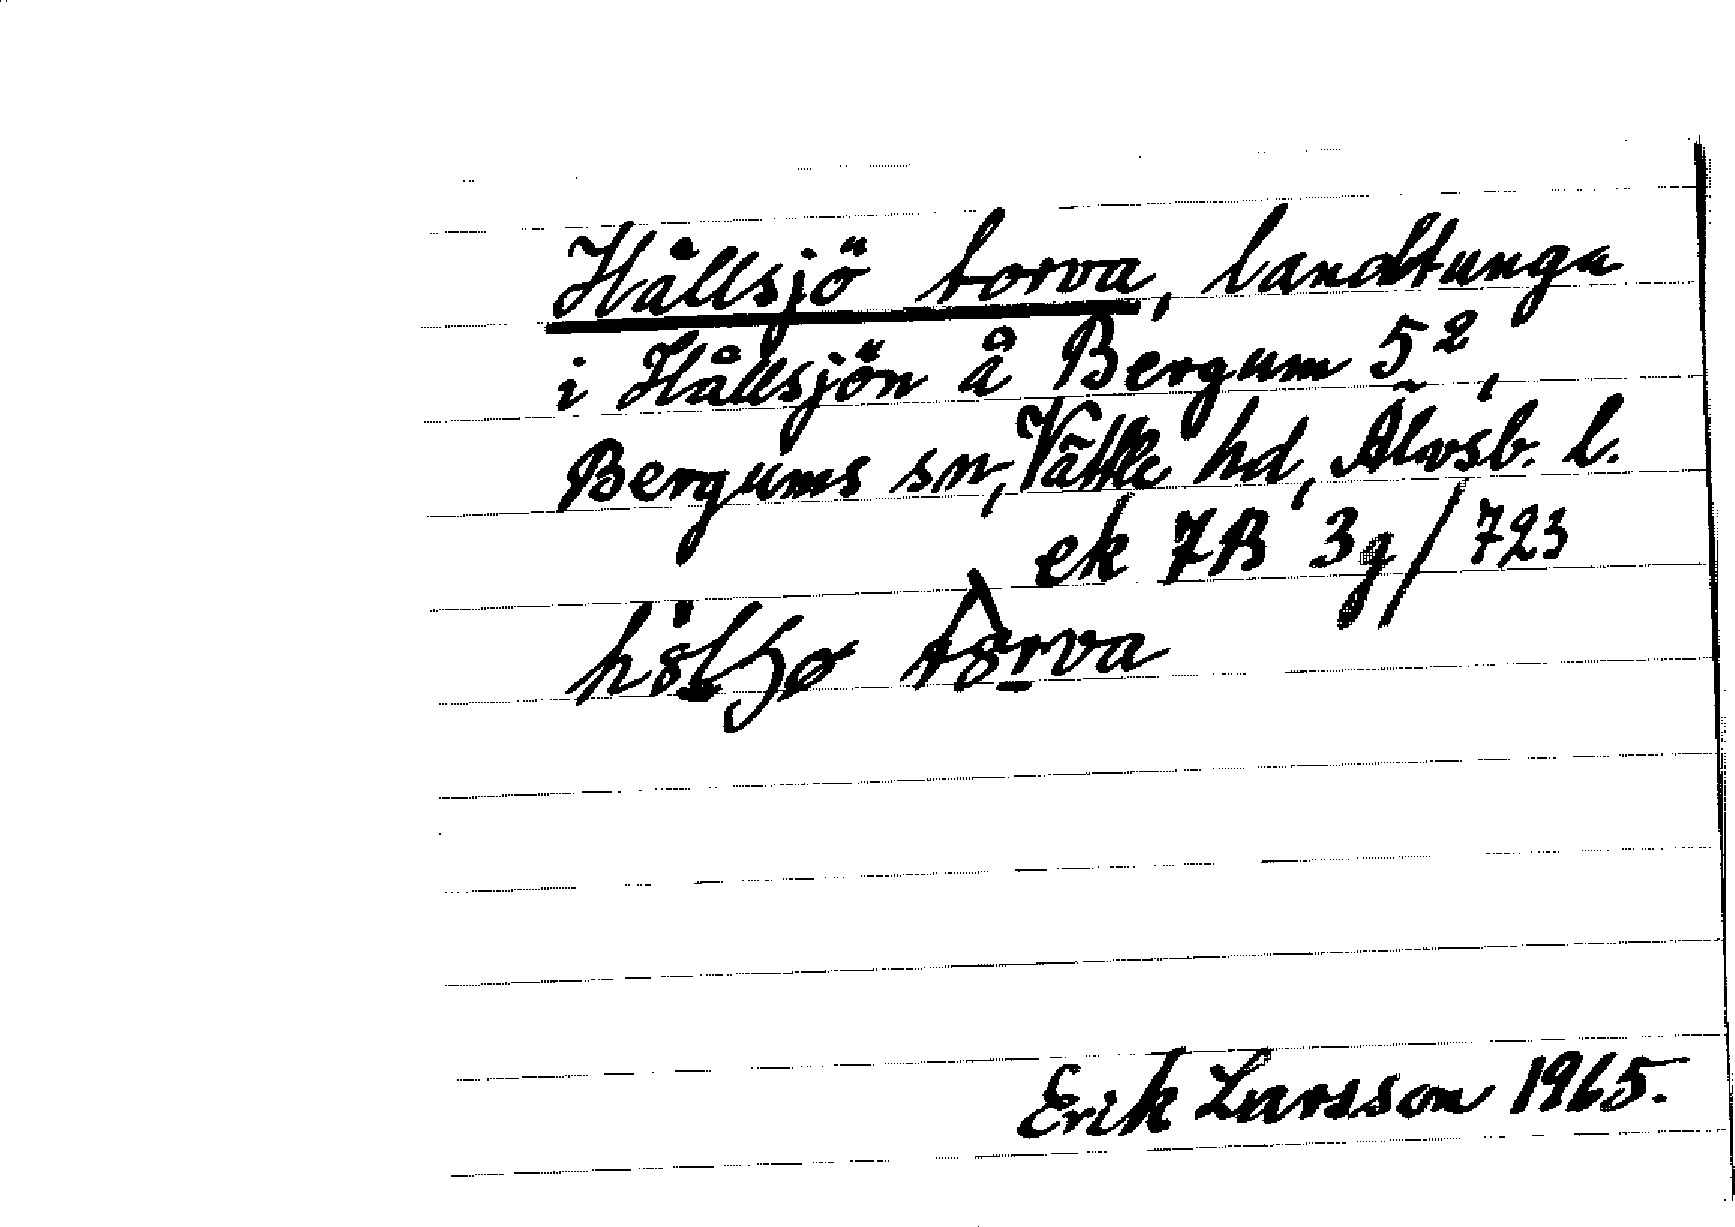 Hållsjö torva, landtunga
i Hållsjön å Bergum 5²,
Bergums sn, Vättle hd, Älvsb. l.
ek 7B 3g/723
Erik Larsson 1965.